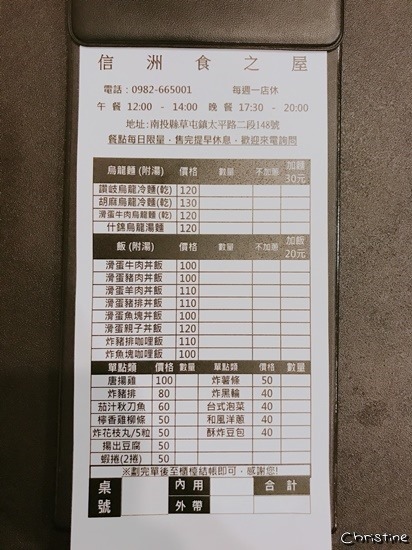 信洲食之屋
電話：0982-665001 每週一店休
午餐 12:00 - 14:00 晚餐 17:30 - 20:00
地址:南投縣草屯鎮太平路二段148號
餐點每日限量，售完提早休息，歡迎來電詢問
烏龍麵 (附湯) 價格 數量 不加蔥 加麵30元
讚岐烏龍冷麵(乾) 120
胡麻烏龍冷麵(乾) 130
滑蛋牛肉烏龍麵(乾) 120
什錦烏龍湯麵 120
飯 (附湯) 價格 數量 不加蔥 加飯20元
滑蛋牛肉丼飯 100
滑蛋豬肉丼飯 100
滑蛋羊肉丼飯 110
滑蛋豬排丼飯 110
滑蛋魚塊丼飯 100
滑蛋親子丼飯 120
炸豬排咖哩飯 110
炸魚塊咖哩飯 100
單點類 價格 數量 單點類 價格 數量
唐揚雞 100 炸薯條 50
炸豬排 80 炸黑輪 40
茄汁秋刀魚 60 台式泡菜 40
檸香雞柳條 50 和風洋蔥 40
炸花枝丸/5粒 50 酥炸豆包 40
揚出豆腐 50
蝦捲(2捲) 50
※劃完單後至櫃檯結帳即可，感謝您!
桌號 內用 合計
外帶
Christine